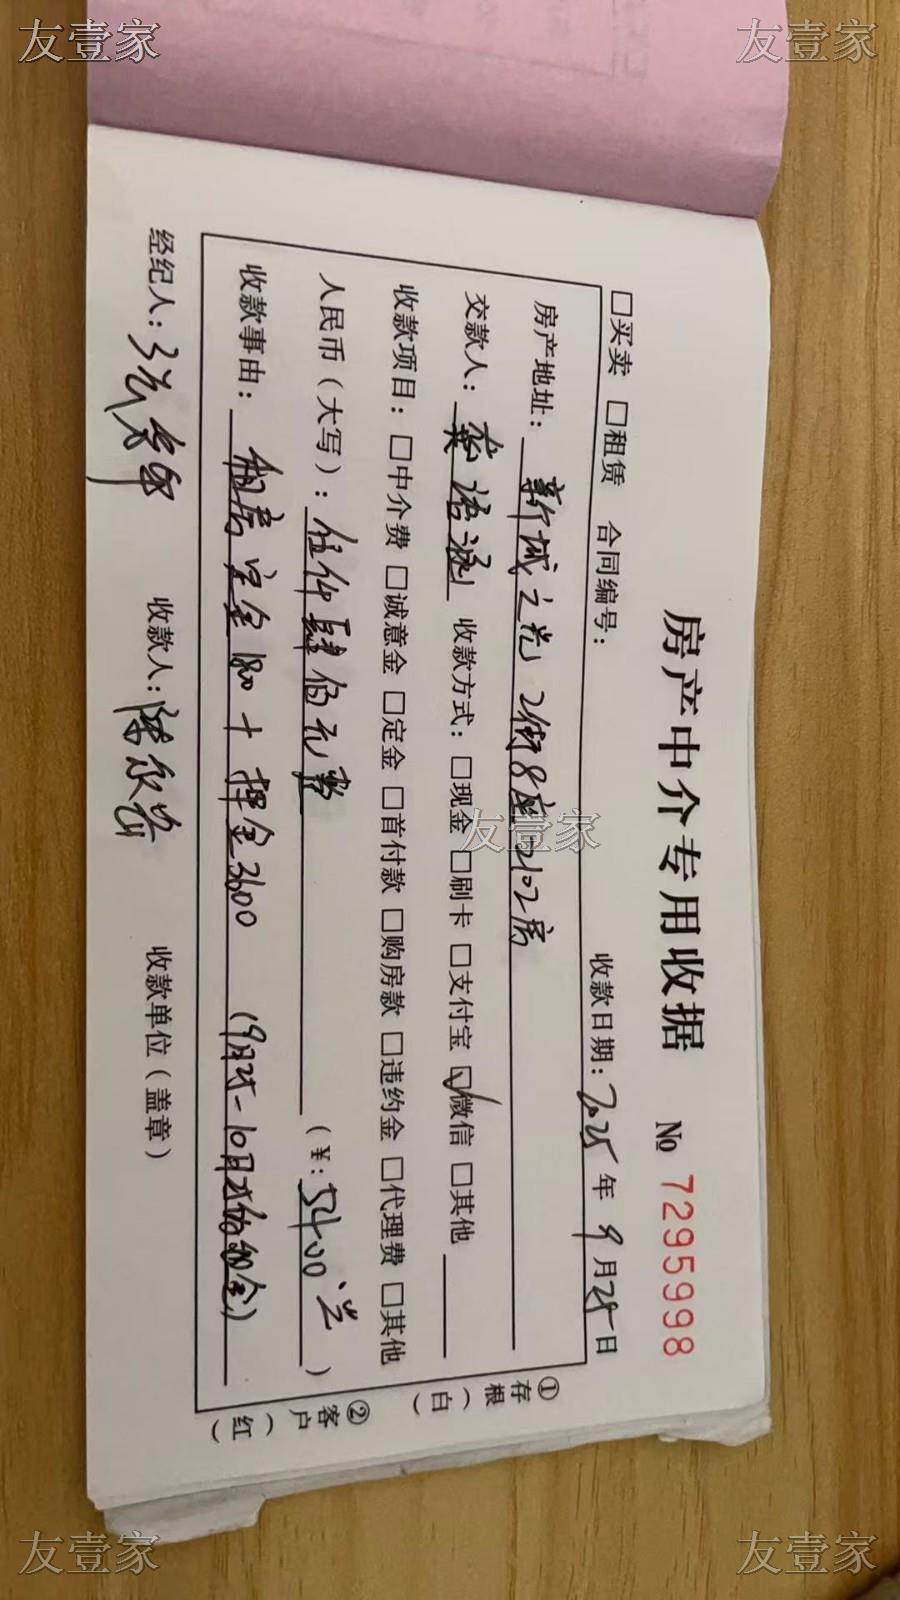 友壹家
友壹家
房产中介专用收据 № 7295998
□买卖 □租赁 合同编号： 收款日期：2025年9月25日
房产地址：新城之光2街8座2102房
交款人：龚语涵 收款方式：□现金 □刷卡 □支付宝 ☑微信 □其他
收款项目：□中介费 □诚意金 □定金 □首付款 □购房款 □违约金 □代理费 □其他
人民币（大写）：伍仟肆佰元整 （¥：5400元）
收款事由：租房定金1800+押金3600 （9月25-10月 的租金）
经纪人： 收款人： 收款单位（盖章）
①存根（白）
②客户（红）
友壹家
友壹家
友壹家